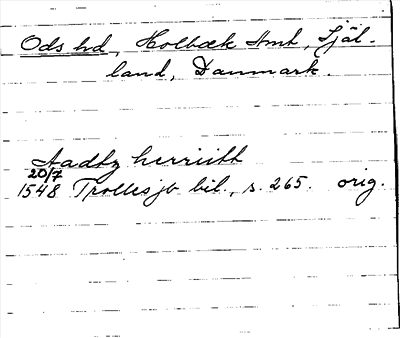 Ods hd, Holbæk Amt, Själ-
land, Danmark.
Aadtz herriitt
20/7
1548 Trolles jb bil., s. 265. orig.